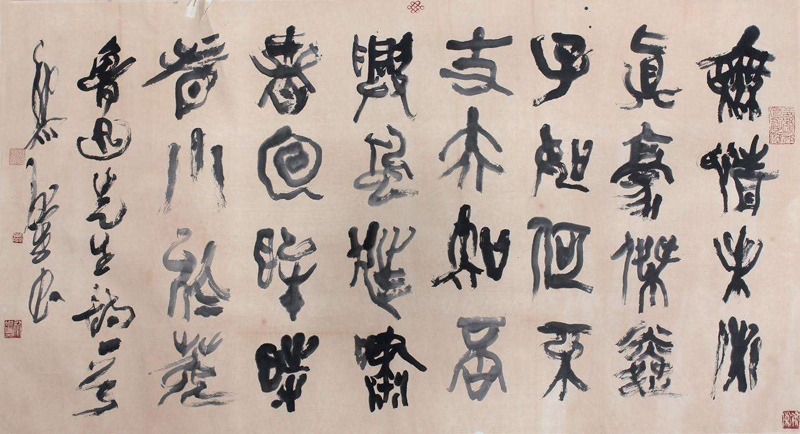 無情未必
真豪傑憐
子如何不
丈夫知否
興風狂嘯
者回眸時
看小於菟
魯迅先生詩一首